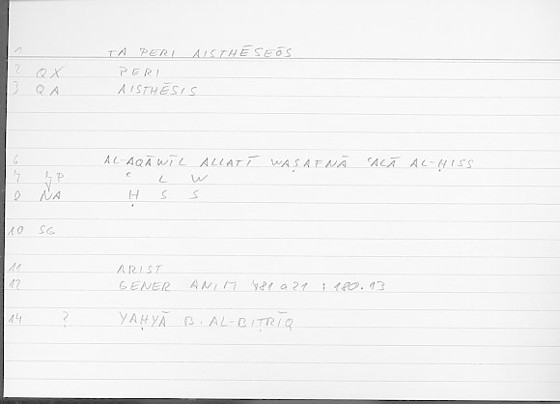 1 TA PERI AISTHĒSEŌS
2 QX PERI
3 QA AISTHĒSIS
6 AL-AQĀWĪL ALLATĪ WAṢAFNĀ ʿALĀ AL-ḤISS
7 LP ʿ L W
8 NA Ḥ S S
10 SG
11 ARIST
12 GENER ANIM 781a21 ; 180.13
14 ? YAḤYĀ B. AL-BIṬRĪQ